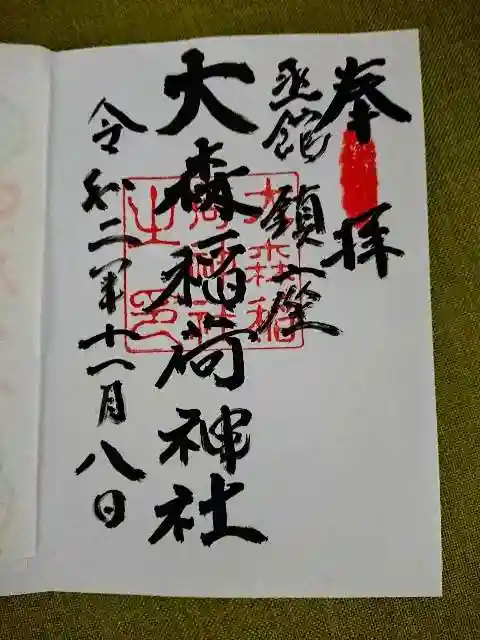 奉拝
函館鎮座
大森稲荷神社
令和二年十一月八日
大森稲
荷神社
之印